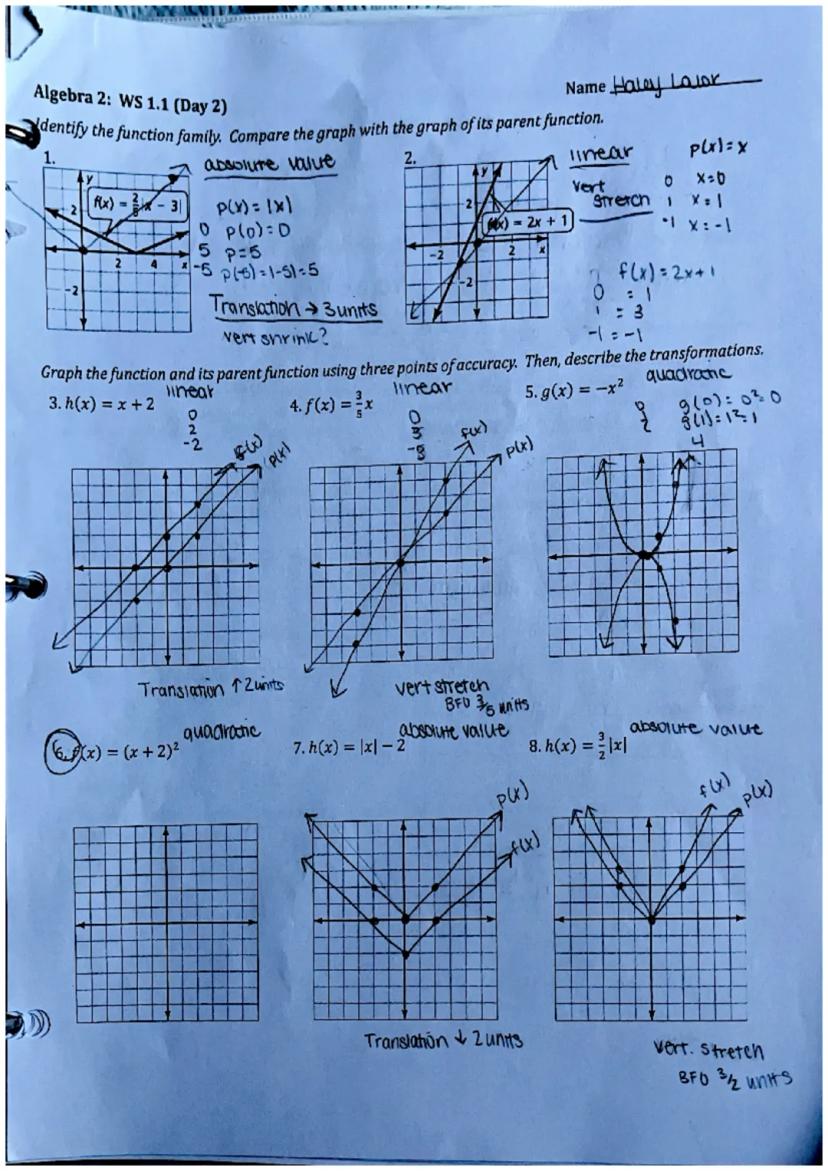 Algebra 2: WS 1.1 (Day 2)
Name Haley Lalor
Identify the function family. Compare the graph with the graph of its parent function.
1.
absolute value
y
2
2 4 x
-2
p(x) = |x|
0 p(0) = 0
5 p = 5
-5 p(-5) = |-5| = 5
Translation → 3 units
vert shrink?
2.
linear
vert
stretch
p(x) = x
0 x = 0
1 x = 1
-1 x = -1
y
2
f(x) = 2x + 1
-2 2 x
-2
f(x) = 2x + 1
0 = 1
1 = 3
-1 = -1
Graph the function and its parent function using three points of accuracy. Then, describe the transformations.
3. h(x) = x + 2
linear
0
2
-2
p(x)
Translation ↑ 2 units
4. f(x) = 3/5 x
linear
0
f(x)
p(x)
vert stretch
BFO 3/5 units
5. g(x) = −x²
quadratic
g(0) = 0² = 0
g(1) = 1² = 1
4
6. f(x) = (x + 2)²
quadratic
7. h(x) = |x| − 2
absolute value
p(x)
f(x)
Translation ↓ 2 units
8. h(x) = 3/2 |x|
absolute value
f(x)
p(x)
vert. stretch
BFO 3/2 units